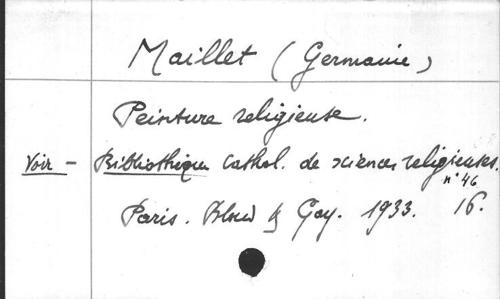 Maillet (Germaine)
Peinture religieuse.
Voir - Bibliothèque Cathol. de sciences religieuses.
n° 46
Paris. Bloud & Gay. 1933. 16.